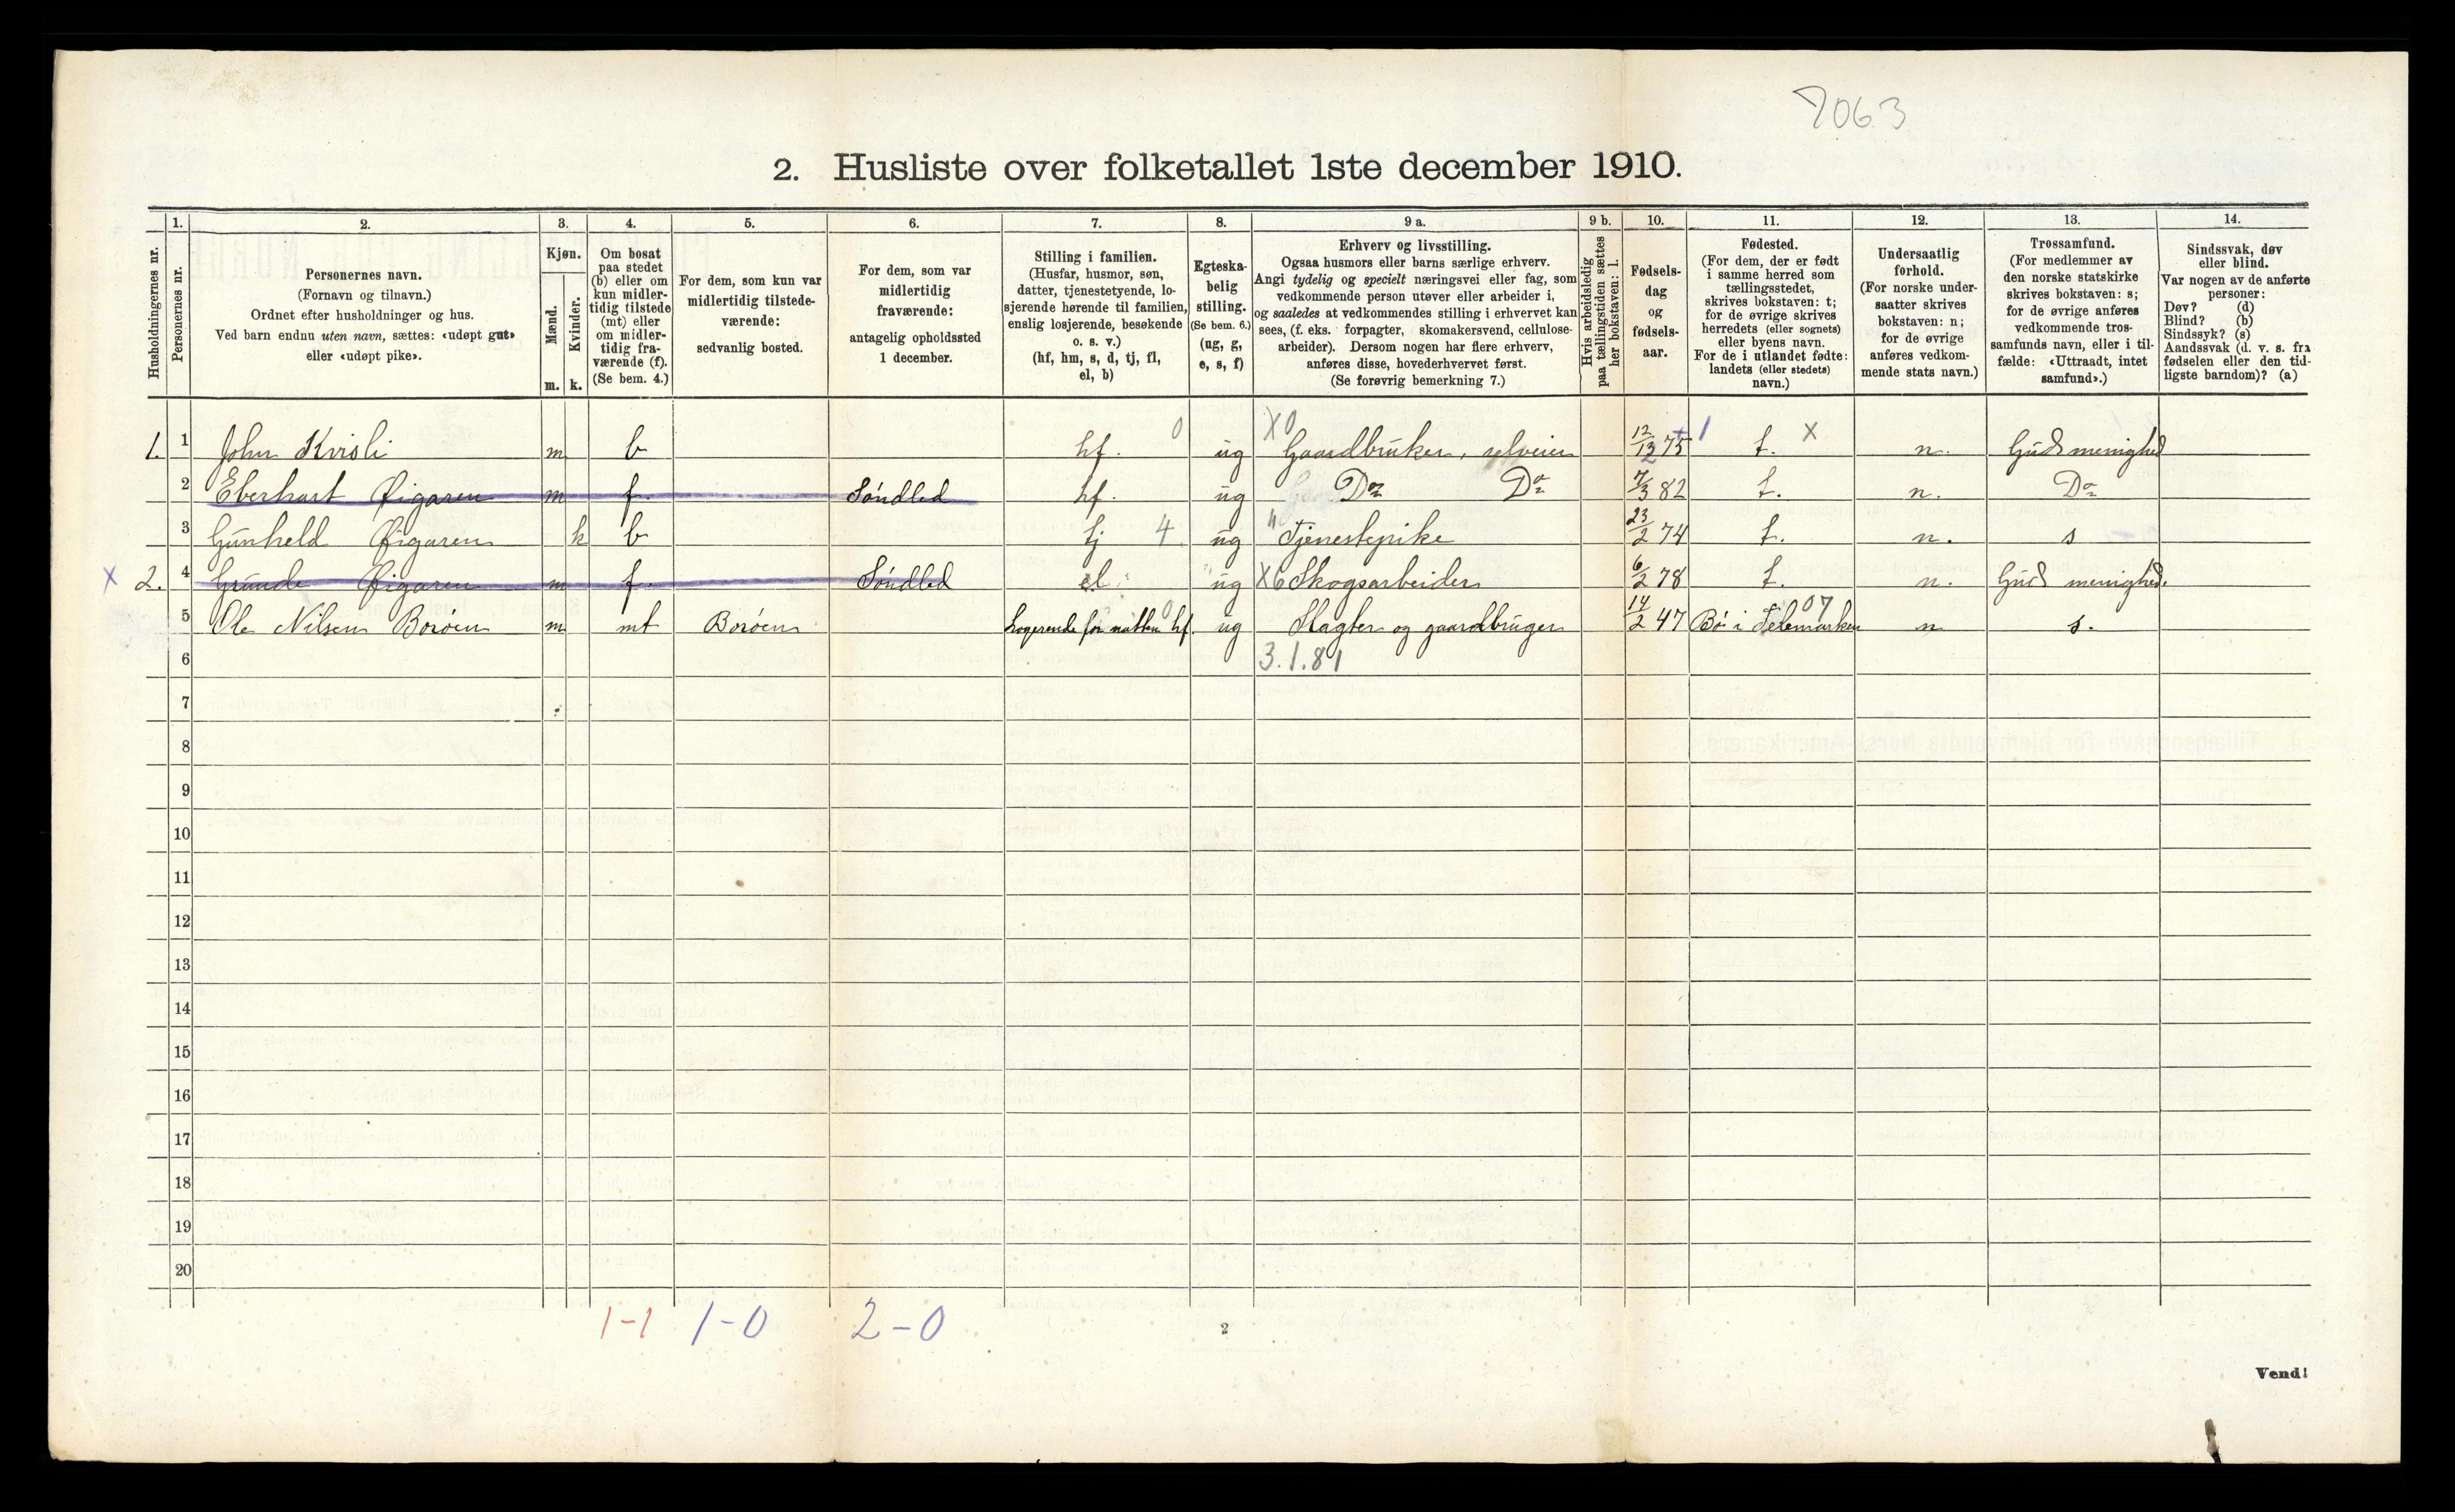 7063
2. Husliste over folketallet 1ste december 1910.
Husholdningernes nr.
1. Personernes nr.
2. Personernes navn.
(Fornavn og tilnavn.)
Ordnet efter husholdninger og hus.
Ved barn endnu uten navn, sættes: «udøpt gut»
eller «udøpt pike».
3. Kjøn.
Mænd. m.
Kvinder. k.
4. Om bosat
paa stedet
(b) eller om
kun midler-
tidig tilstede
(mt) eller
om midler-
tidig fra-
værende (f).
(Se bem. 4.)
5. For dem, som kun var
midlertidig tilstede-
værende:
sedvanlig bosted.
6. For dem, som var
midlertidig
fraværende:
antagelig opholdssted
1 december.
7. Stilling i familien.
(Husfar, husmor, søn,
datter, tjenestetyende, lo-
sjerende hørende til familien,
enslig losjerende, besøkende
o. s. v.)
(hf, hm, s, d, tj, fl,
el, b)
8. Egteska-
belig
stilling.
(Se bem. 6.)
(ug, g,
e, s, f)
9 a. Erhverv og livsstilling.
Ogsaa husmors eller barns særlige erhverv.
Angi tydelig og specielt næringsvei eller fag, som
vedkommende person utøver eller arbeider i,
og saaledes at vedkommendes stilling i erhvervet kan
sees, (f. eks. forpagter, skomakersvend, cellulose-
arbeider). Dersom nogen har flere erhverv,
anføres disse, hovederhvervet først.
(Se forøvrig bemerkning 7.)
9 b. Hvis arbeidsledig
paa tællingstiden sættes
her bokstaven: l.
10. Fødsels-
dag
og
fødsels-
aar.
11. Fødested.
(For dem, der er født
i samme herred som
tællingsstedet,
skrives bokstaven: t;
for de øvrige skrives
herredets (eller sognets)
eller byens navn.
For de i utlandet fødte:
landets (eller stedets)
navn.)
12. Undersaatlig
forhold.
(For norske under-
saatter skrives
bokstaven: n;
for de øvrige
anføres vedkom-
mende stats navn.)
13. Trossamfund.
(For medlemmer av
den norske statskirke
skrives bokstaven: s;
for de øvrige anføres
vedkommende tros-
samfunds navn, eller i til-
fælde: «Uttraadt, intet
samfund».)
14. Sindssvak, døv
eller blind.
Var nogen av de anførte
personer:
Døv? (d)
Blind? (b)
Sindssyk? (s)
Aandssvak (d. v. s. fra
fødselen eller den tid-
ligste barndom)? (a)
1. 1 John Kvisli m b hf. 0 X0 ug Gaardbruker, selveier 12/12 75 1 t. X n. Guds menighed
2 Eberhart Øigaren m f. Søndled hf. ug Do Do 7/3 82 t. n. Do
3 Gunheld Øigaren k b tj 4 ug " Tjenestepike 23/2 74 t. n. s
X 2. 4 Grunde Øigaren m f. Søndled el ug X6 Skogsarbeider 6/2 78 t. n. Guds menighed.
5 Ole Nilsen Borøen m mt Borøen Logerende for natten hf. 0 ug Slagter og gaardbruger 14/2 47 Bø i Telemarken 07 n s.
6 3.1.81
7
8
9
10
11
12
13
14
15
16
17
18
19
20
1-1 1-0 2-0
2
Vend!